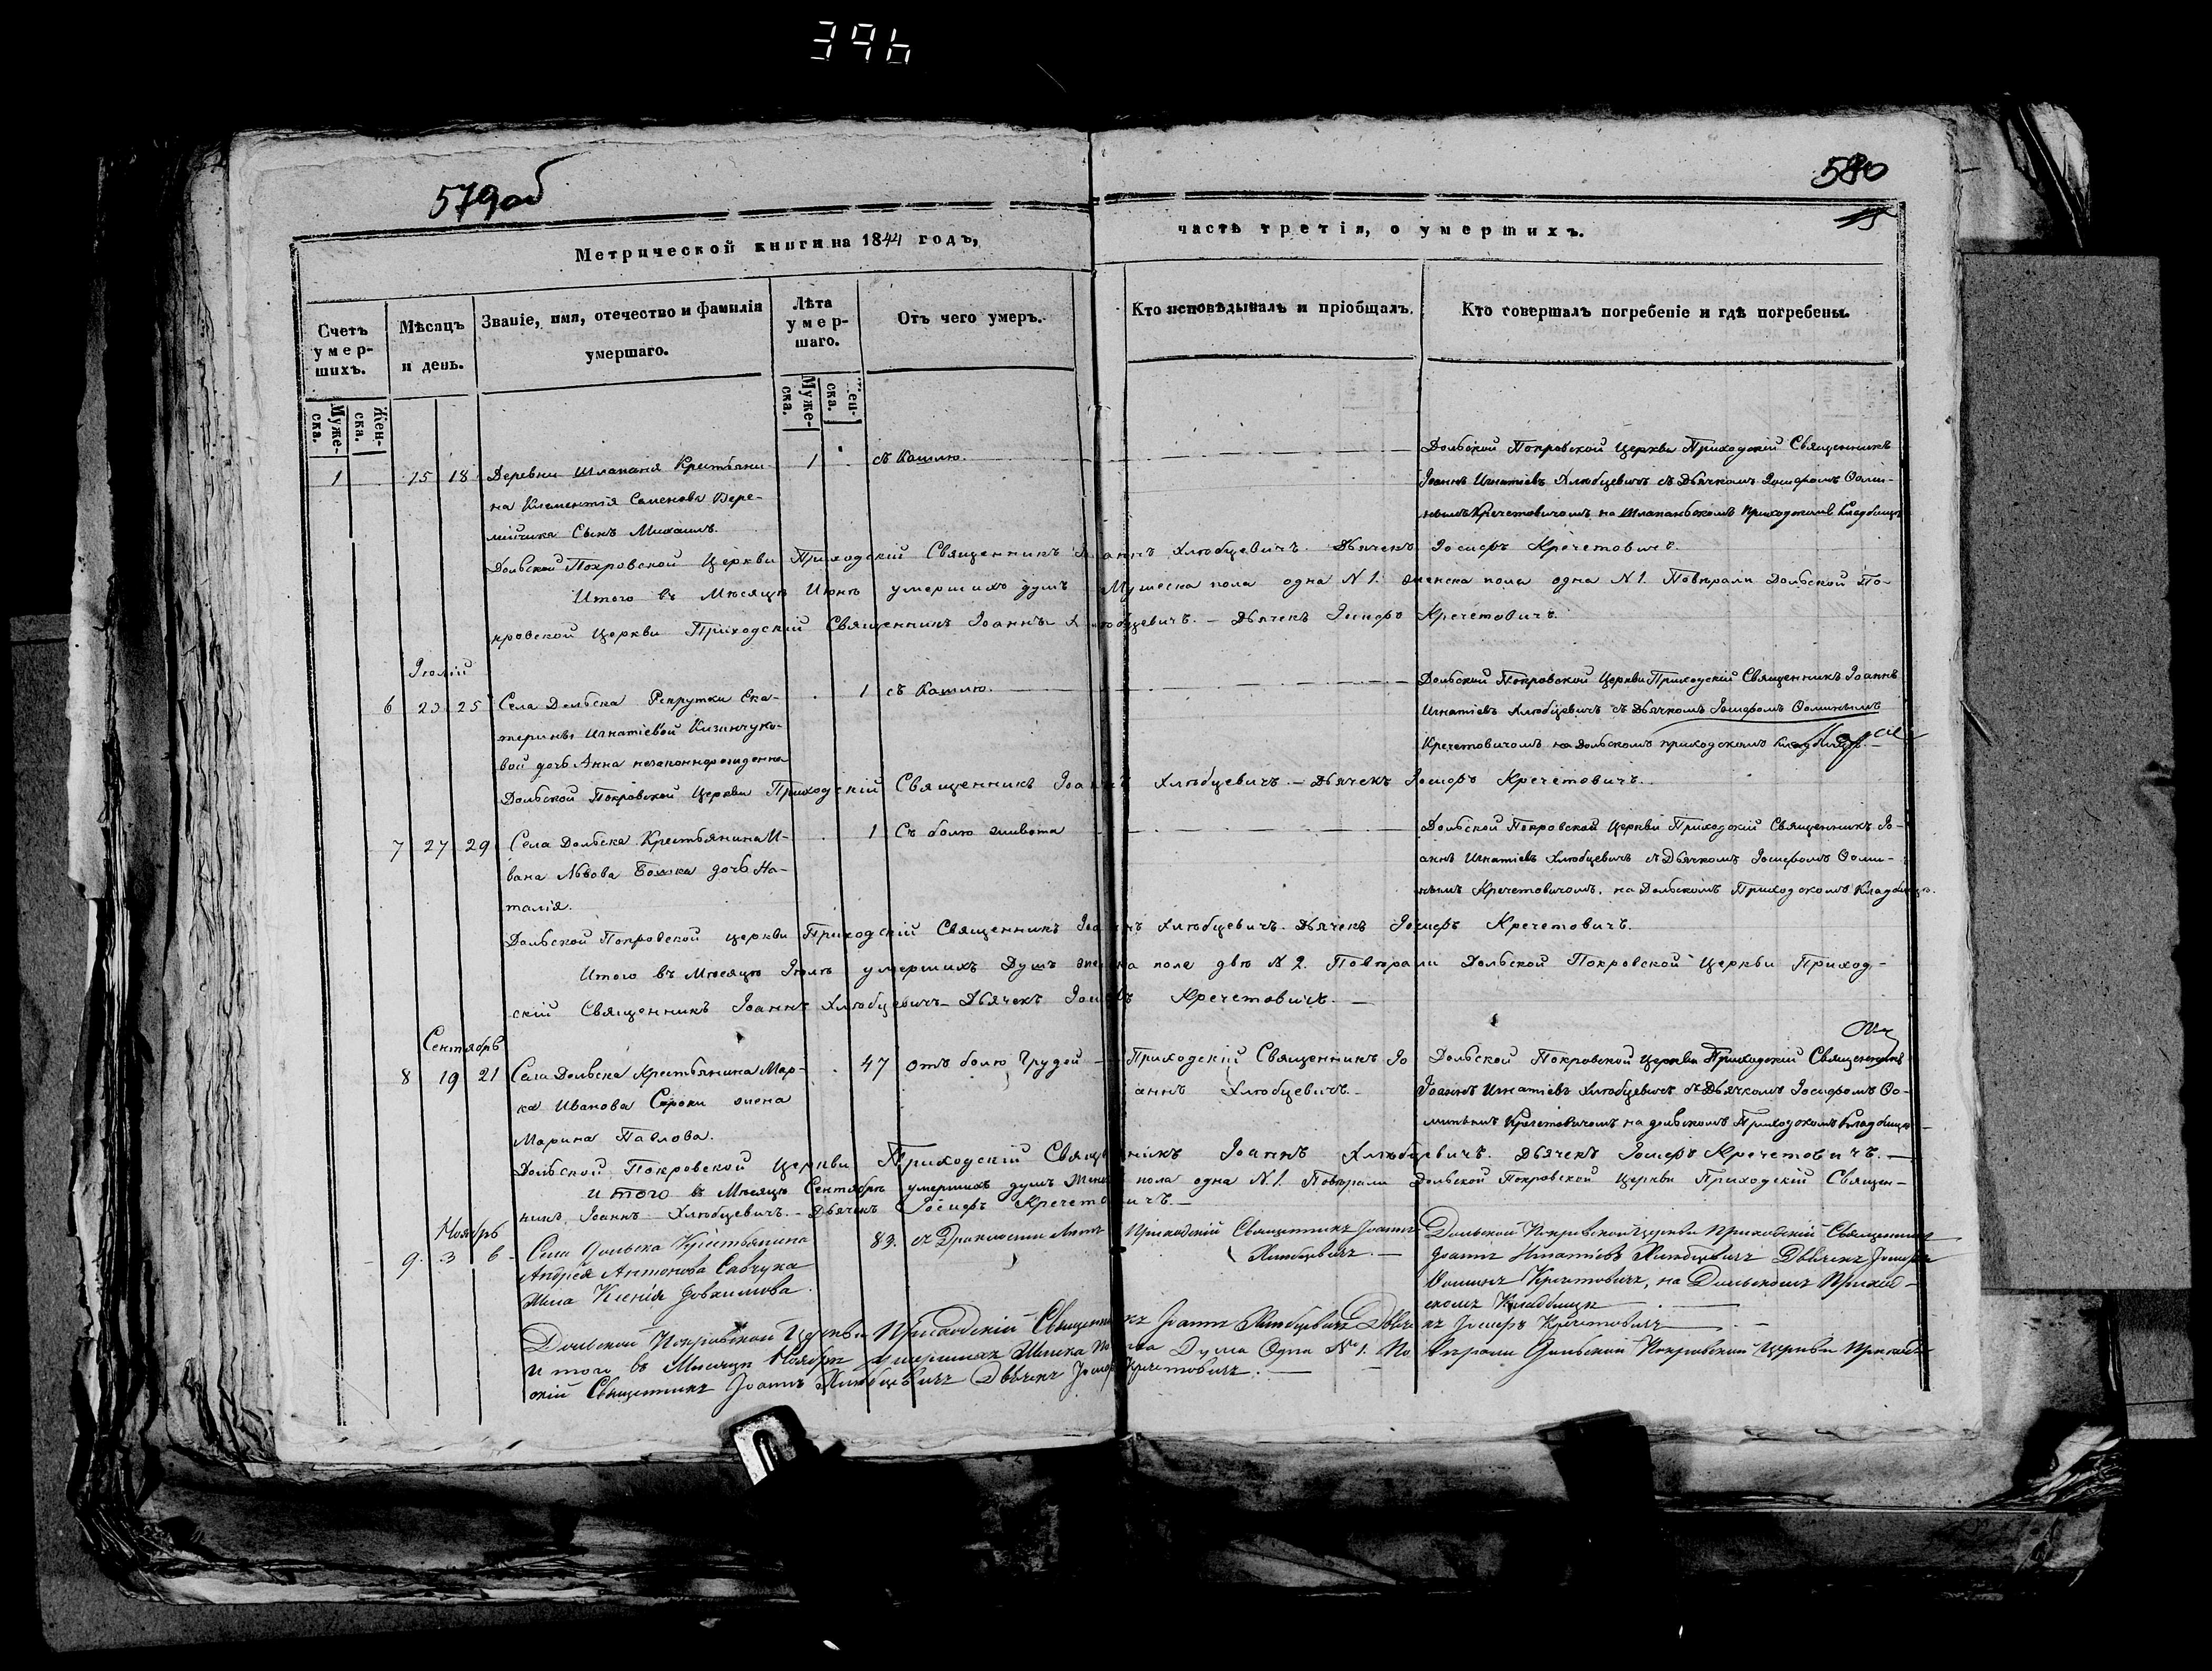 396
579об
580
15
Метрической книги на 1844 годъ,
часть третія, о умершихъ.
Счетъ умершихъ.
Мѣсяцъ и день.
Званіе, имя, отечество и фамилія умершаго.
Лѣта умершаго.
Отъ чего умеръ.
Кто исповѣдывалъ и пріобщалъ.
Кто совершалъ погребеніе и гдѣ погребены.
Мужеска.
Женска.
Мужеска.
Женска.
1 15 18 Деревни Шлапаня Крестьяни- 1 съ Кашлю.
на Климентія Семенова Вере-
мійчика Сынъ Михаилъ.
Дольской Покровской Церкви Приходскій Священникъ
Іоаннъ Игнатіевъ Хлюбцевичъ съ Дьячкомъ Іосифомъ Ѳоми-
нымъ Кречетовичомъ на Шлапаньскомъ приходскомъ Кладбищѣ
Дольской Покровской Церкви Приходскій Священникъ Іоаннъ Хлюбцевичъ. Дьячекъ Іосифъ Кречетовичъ.
Итого въ Мѣсяцѣ Июнѣ умершихъ душъ Мужеска пола одна N 1. женска пола одна N 1. Повѣрали Дольской По-
кровской Церкви Приходскій Священникъ Іоаннъ Хлюбцевичъ. – Дьячекъ Іосифъ Кречетовичъ.
Іюлій
6 23 25 Села Дольска Рекрутки Ека- 1 съ Кашлю.
терины Игнатіевой Кизинчуко-
вой дочь Анна незаконнорожденна
Дольской Покровской Церкви Приходскій Священникъ Іоаннъ
Игнатіевъ Хлюбцевичъ съ Дьячкомъ Іосифомъ Ѳоминымъ
Кречетовичомъ на Дольскомъ приходскомъ кладбищѣ. –
Дольской Покровской Церкви Приходскій Священникъ Іоаннъ Хлюбцевичъ. – Дьячекъ Іосифъ Кречетовичъ.
7 27 29 Села Дольска Крестьянина И- 1 Съ болю живота
вана Львова Бошка дочь На-
талія.
Дольской Покровской Церкви Приходскій Священникъ Іо-
аннъ Игнатіевъ Хлюбцевичъ съ Дьячкомъ Іосифомъ Ѳоми-
нымъ Кречетовичомъ, на Дольскомъ Приходскомъ Кладбищѣ.
Дольской Покровской церкви Приходскій Священникъ Іоаннъ Хлюбцевичъ. Дьячекъ Іосифъ Кречетовичъ.
Итого въ Мѣсяцѣ Іюлѣ умершихъ Душъ женска пола двѣ N 2. Повѣрали Дольской Покровской Церкви Приход-
скій Священникъ Іоаннъ Хлюбцевичъ – Дьячекъ Іосифъ Кречетовичъ. –
Сентябрь
8 19 21 Села Дольска Крестьянина Мар- 47 отъ болю Грудей –
ка Иванова Сроки жена
Марина Павлова.
Приходскій Священникъ Іо-
аннъ Хлюбцевичъ. –
Дольской Покровской Церкви Приходскій Священникъ
Іоаннъ Игнатіевъ Хлюбцевичъ съ Дьячкомъ Іосифомъ Ѳо-
минымъ Кречетовичомъ на дольскомъ Приходскомъ Кладбищѣ –
Дольской Покровской Церкви Приходскій Священникъ Іоаннъ Хлюбцевичъ. Дьячекъ Іосифъ Кречетовичъ. –
Итого въ Мѣсяцѣ Сентябрѣ умершихъ душъ Женска пола одна N 1. Повѣрали Дольской Покровской Церкви Приходскій Священ-
никъ, Іоаннъ Хлюбцевичъ. – Дьячекъ Іосифъ Кречетовичъ. –
Ноябрь
9. 3 6 Села Дольска Крестьянина 83.
Андрея Антонова Савчука
Жена Ксенія Іоакимова
Приходскій Священникъ Іоаннъ
Хлюбцевичъ. –
Дольской Покровской Церкви Приходскій Священникъ
Іоаннъ Игнатіевъ Хлюбцевичъ Дьячекъ Іосифъ
Ѳоминъ Кречетовичъ, на Дольскомъ Приход-
скомъ Кладбищѣ
Дольской Покровской Церкви Приходскій Священникъ Іоаннъ Хлюбцевичъ Дьячекъ Іосифъ Кречетовичъ
Итого въ Мѣсяцѣ Ноябрѣ Умершихъ Женска Пола Душа Одна № 1. Повѣрали Дольской Покровской Церкви Приход-
скій Священникъ Іоаннъ Хлюбцевичъ Дьячекъ Іосифъ Кречетовичъ. –